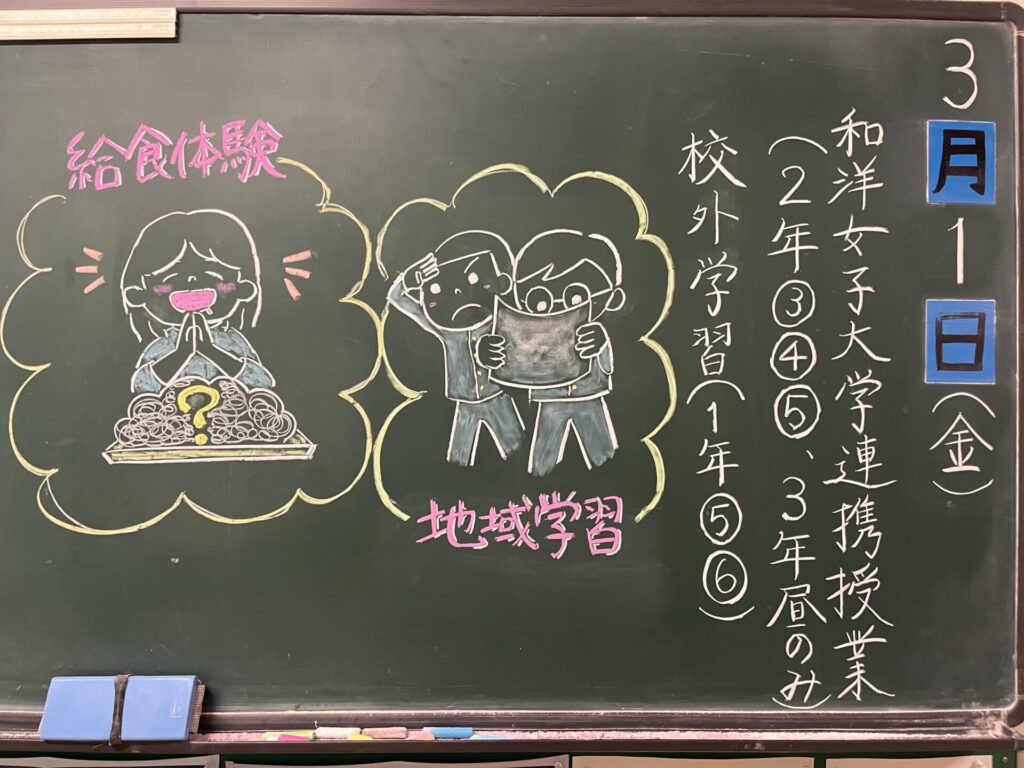 3月1日(金)
和洋女子大学連携授業
(2年③④⑤、3年昼のみ)
校外学習(1年⑤⑥)
地域学習
給食体験
?